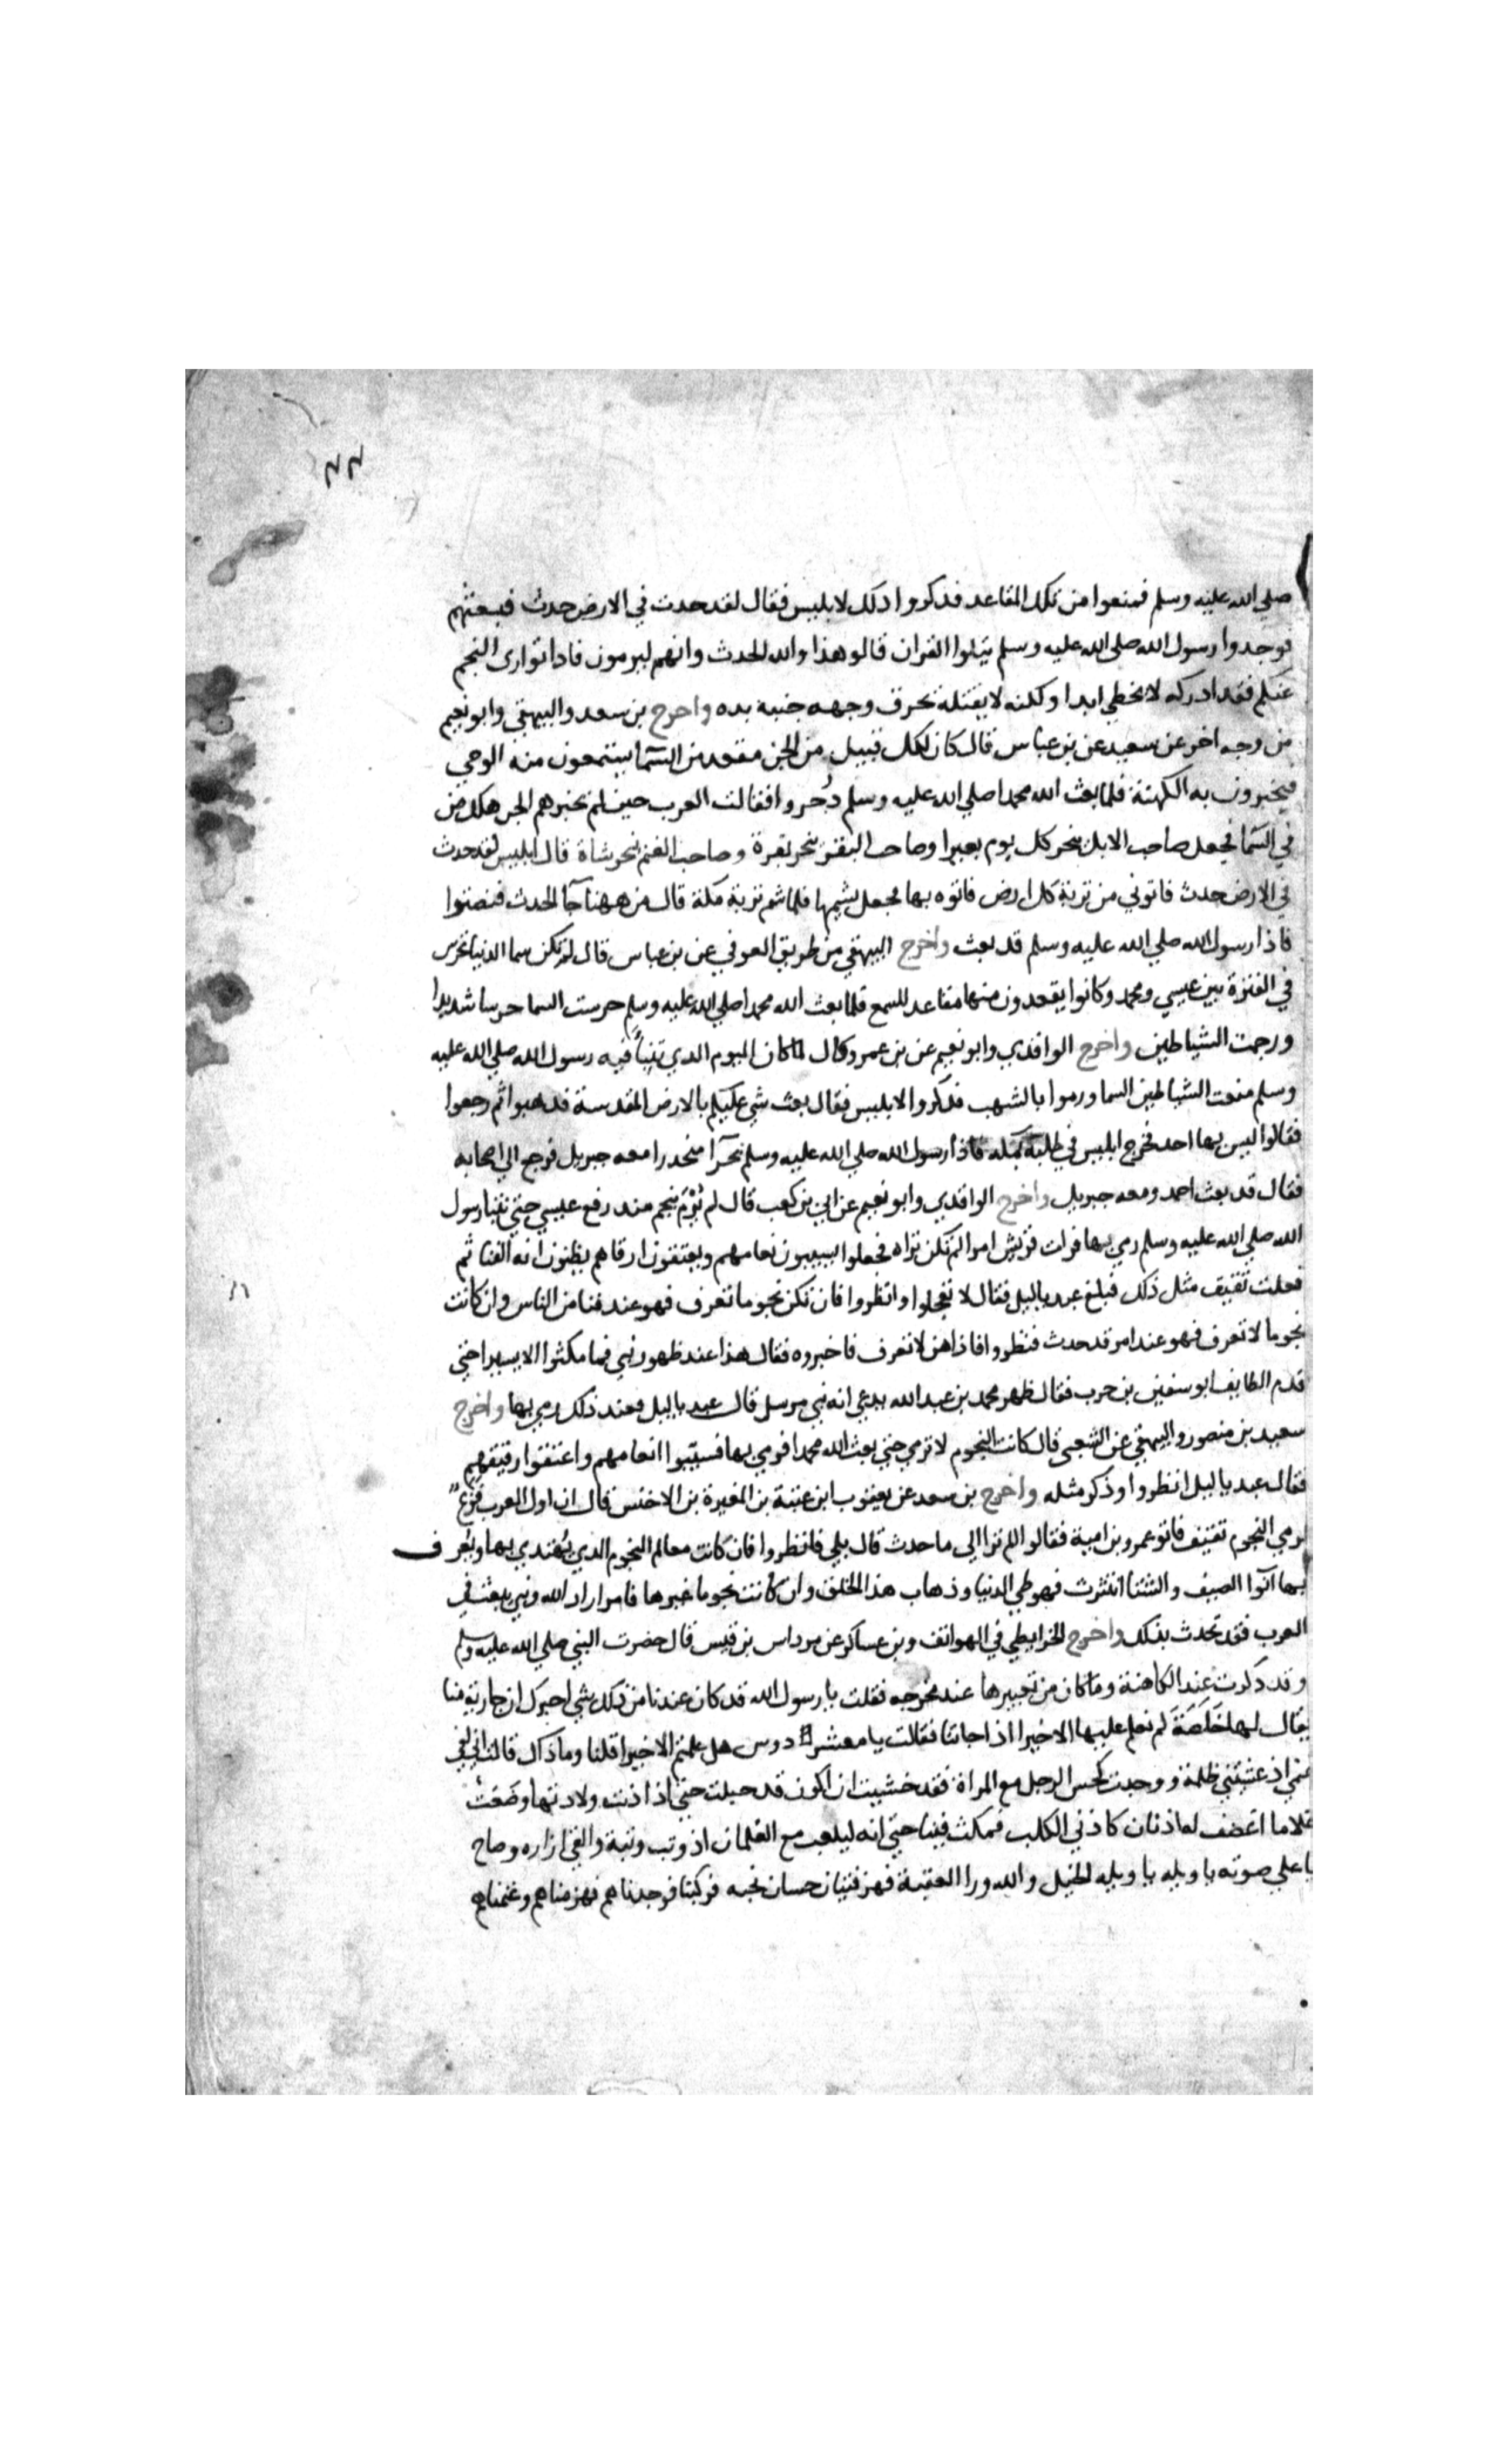 ٢٢
صلي الله عليه وسلم فمنعوا من تلك المقاعد فذكروا ذلك لابليس فقال لقد حدث في الارض حدث فبعثهم
فوجدوا رسول الله صلى الله عليه وسلم يتلوا القران قالو هذا والله الحدث وانهم ليرمون فاذا توارى النجم
عنكم فقد ادركه لا يخطي ابدا ولكنه لا يقتله يحرق وجهه جنبه يده واخرج بن سعد والبيهقي وابو نعيم
من وجه اخر عن سعيد عن بن عباس قال كان لكل قبيل من الجن مقعد من السما يستمعون منه الوحي
فيخبرون به الكهنة فلما بعث الله محمدا صلي الله عليه وسلم دُحروا فقالت العرب حين لم تخبرهم الجن هلك من
في السما فجعل صاحب الابل ينحر كل يوم بعيرا وصاحب البقر ينحر بقرة وصاحب الغنم ينحر شاة قال ابليس لقد حدث
في الارض حدث فاتوني من تربة كل ارض فاتوه بها فجعل يشمها فلما شم تربة مكة قال من ههنا جآ الحدث فنصتوا
فاذا رسول الله صلي الله عليه وسلم قد بعث واخرج البيهقي من طريق العوفي عن بن عباس قال لم تكن سما الدنيا تحرس
في الفترة بين عيسي ومحمد وكانوا يقعدون منها مقاعد للسمع فلما بعث الله محمدا صلي الله عليه وسلم حرست السما حرسا شديدا
ورجمت الشياطين واخرج الواقدي وابو نعيم عن بن عمرو قال لما كان اليوم الذي تنبأ فيه رسول الله صلي الله عليه
وسلم منعت الشياطين السما ورموا بالشهب فذكروا لابليس فقال بعث نبي عليكم بالارض المقدسة فذهبوا ثم رجعوا
فقالوا ليس بها احد فخرج ابليس في طلبه بمكه فاذا رسول الله صلي الله عليه وسلم بحرآ منحدرا معه جبريل فرجع الي اصحابه
فقال قد بعث احمد ومعه جبريل واخرج الواقدي وابو نعيم عن ابي بن كعب قال لم يُرْمَ بنجم منذ رفع عيسي حتي تنبا رسول
الله صلي الله عليه وسلم رمي بها فرات قريش امرا لم تكن تراه فجعلوا يسيبون نعامهم ويعتقون ارقاهم يظنون انه الفنا ثم
فعلت ثقيف مثل ذلك فبلغ عبد ياليل فقال لا تعجلوا وانظروا فان تكن نجوما تعرف فهو عند فنا من الناس وان كانت
نجوما لا تعرف فهو عند امر قد حدث فنظروا فاذا هن لا تعرف فاخبروه فقال هذا عند ظهور نبي فما مكثوا الا يسيرا حتي
قدم الطايف ابو سفين بن حرب فقال ظهر محمد بن عبد الله يدعي انه نبي مرسل قال عبد ياليل فعند ذلك رمي بها واخرج
سعيد بن منصور والبيهقي عن الشعبي قال كانت النجوم لا ترمي حتي بعث الله محمدا فرمي بها فسيّبوا انعامهم واعتقوا رقيقهم
فقال عبد ياليل انظروا وذكر مثله واخرج بن سعد عن يعقوب ابن عتبة بن المغيرة بن الاخنس قال ان اول العرب فَزِعَ
لرمي النجوم ثقيف فاتو عمرو بن امية فقالوا الم ترا الي ما حدث قال بلي فانظروا فان كانت معالم النجوم الذي يُهتدي بها ويُعرف
بها آنوا الصيف والشتا انتثرت فهو طي الدنيا وذهاب هذا الخلق وان كانت نجوما غيرها فامر اراد الله ونبي يبعث في
العرب فقد تحدث بذلك واخرج الخرايطي في الهواتف وبن عساكر عن مرداس بن قيس قال حضرت النبي صلي الله عليه وسلم
وقد ذكرت عند الكاهنة وما كان من تعبيرها عند مخرجه فقلت يا رسول الله قد كان عندنا من ذلك شي اخبرك ان جارية منا
يقال لها خَلَصَةُ لم نعلم عليها الا خيرا اذا جاتنا فقالت يا معشر دوس هل علمتم الا خيرا قلنا وما ذاك قالت اني لفي
غنمي اذ غشيتني ظلمة ووجدت كحس الرجل مع المراة فقد خشيت ان اكون قد حبلت حتي اذا دنت ولادتها وضَعَتْ
غلاما اغضف له اذنان كاذني الكلب فمكث فينا حتي انه ليلعب مع الغلمان اذ وثب وثبة والقي ازاره وصاح
باعلي صوته يا ويله يا ويله الخيل والله ورا العقبة فهن فتيان حسان نجبه فركبنا فوجدناهم فهزمناهم وغنمناهم